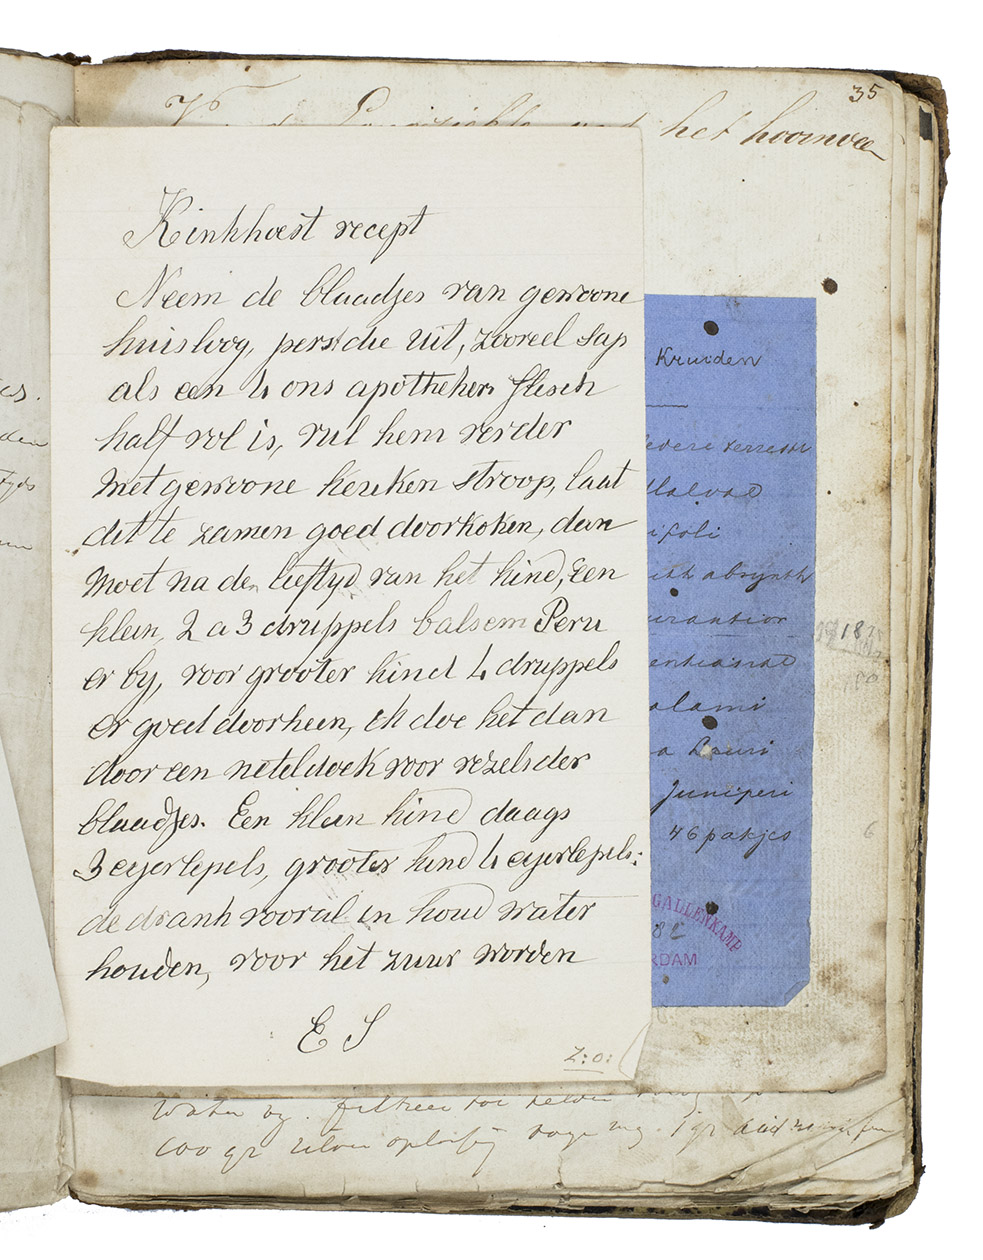 35
het hoornvee
Kinkhoest recept
Neem de blaadjes van gewoone
huisloog, pers die uit, zooveel sap
als een 4 ons apothekers flesch
half vol is, vul hem verder
met gewone keuken stroop, laat
dit te zamen goed doorkoken, dan
moet na de leeftyd van het kind, Een
klein, 2 a 3 druppels balsem Peru
er by, voor grooter kind 4 druppels
er goed doorheen, ik doe het dan
door een neteldoek voor vezels der
blaadjes. Een klein kind daags
3 eyerlepels, grooter kind 4 eyerlepels:
de drank vooral in koud water
houden, voor het zuur worden
E S
Z:O:
Kruiden
edere terrestr
Malvae
ifoli
absynth
urantior
alami
a Lauri
Juniperi
46 pakjes
GALLENKAMP
RDAM
6
water
100 gr zilver